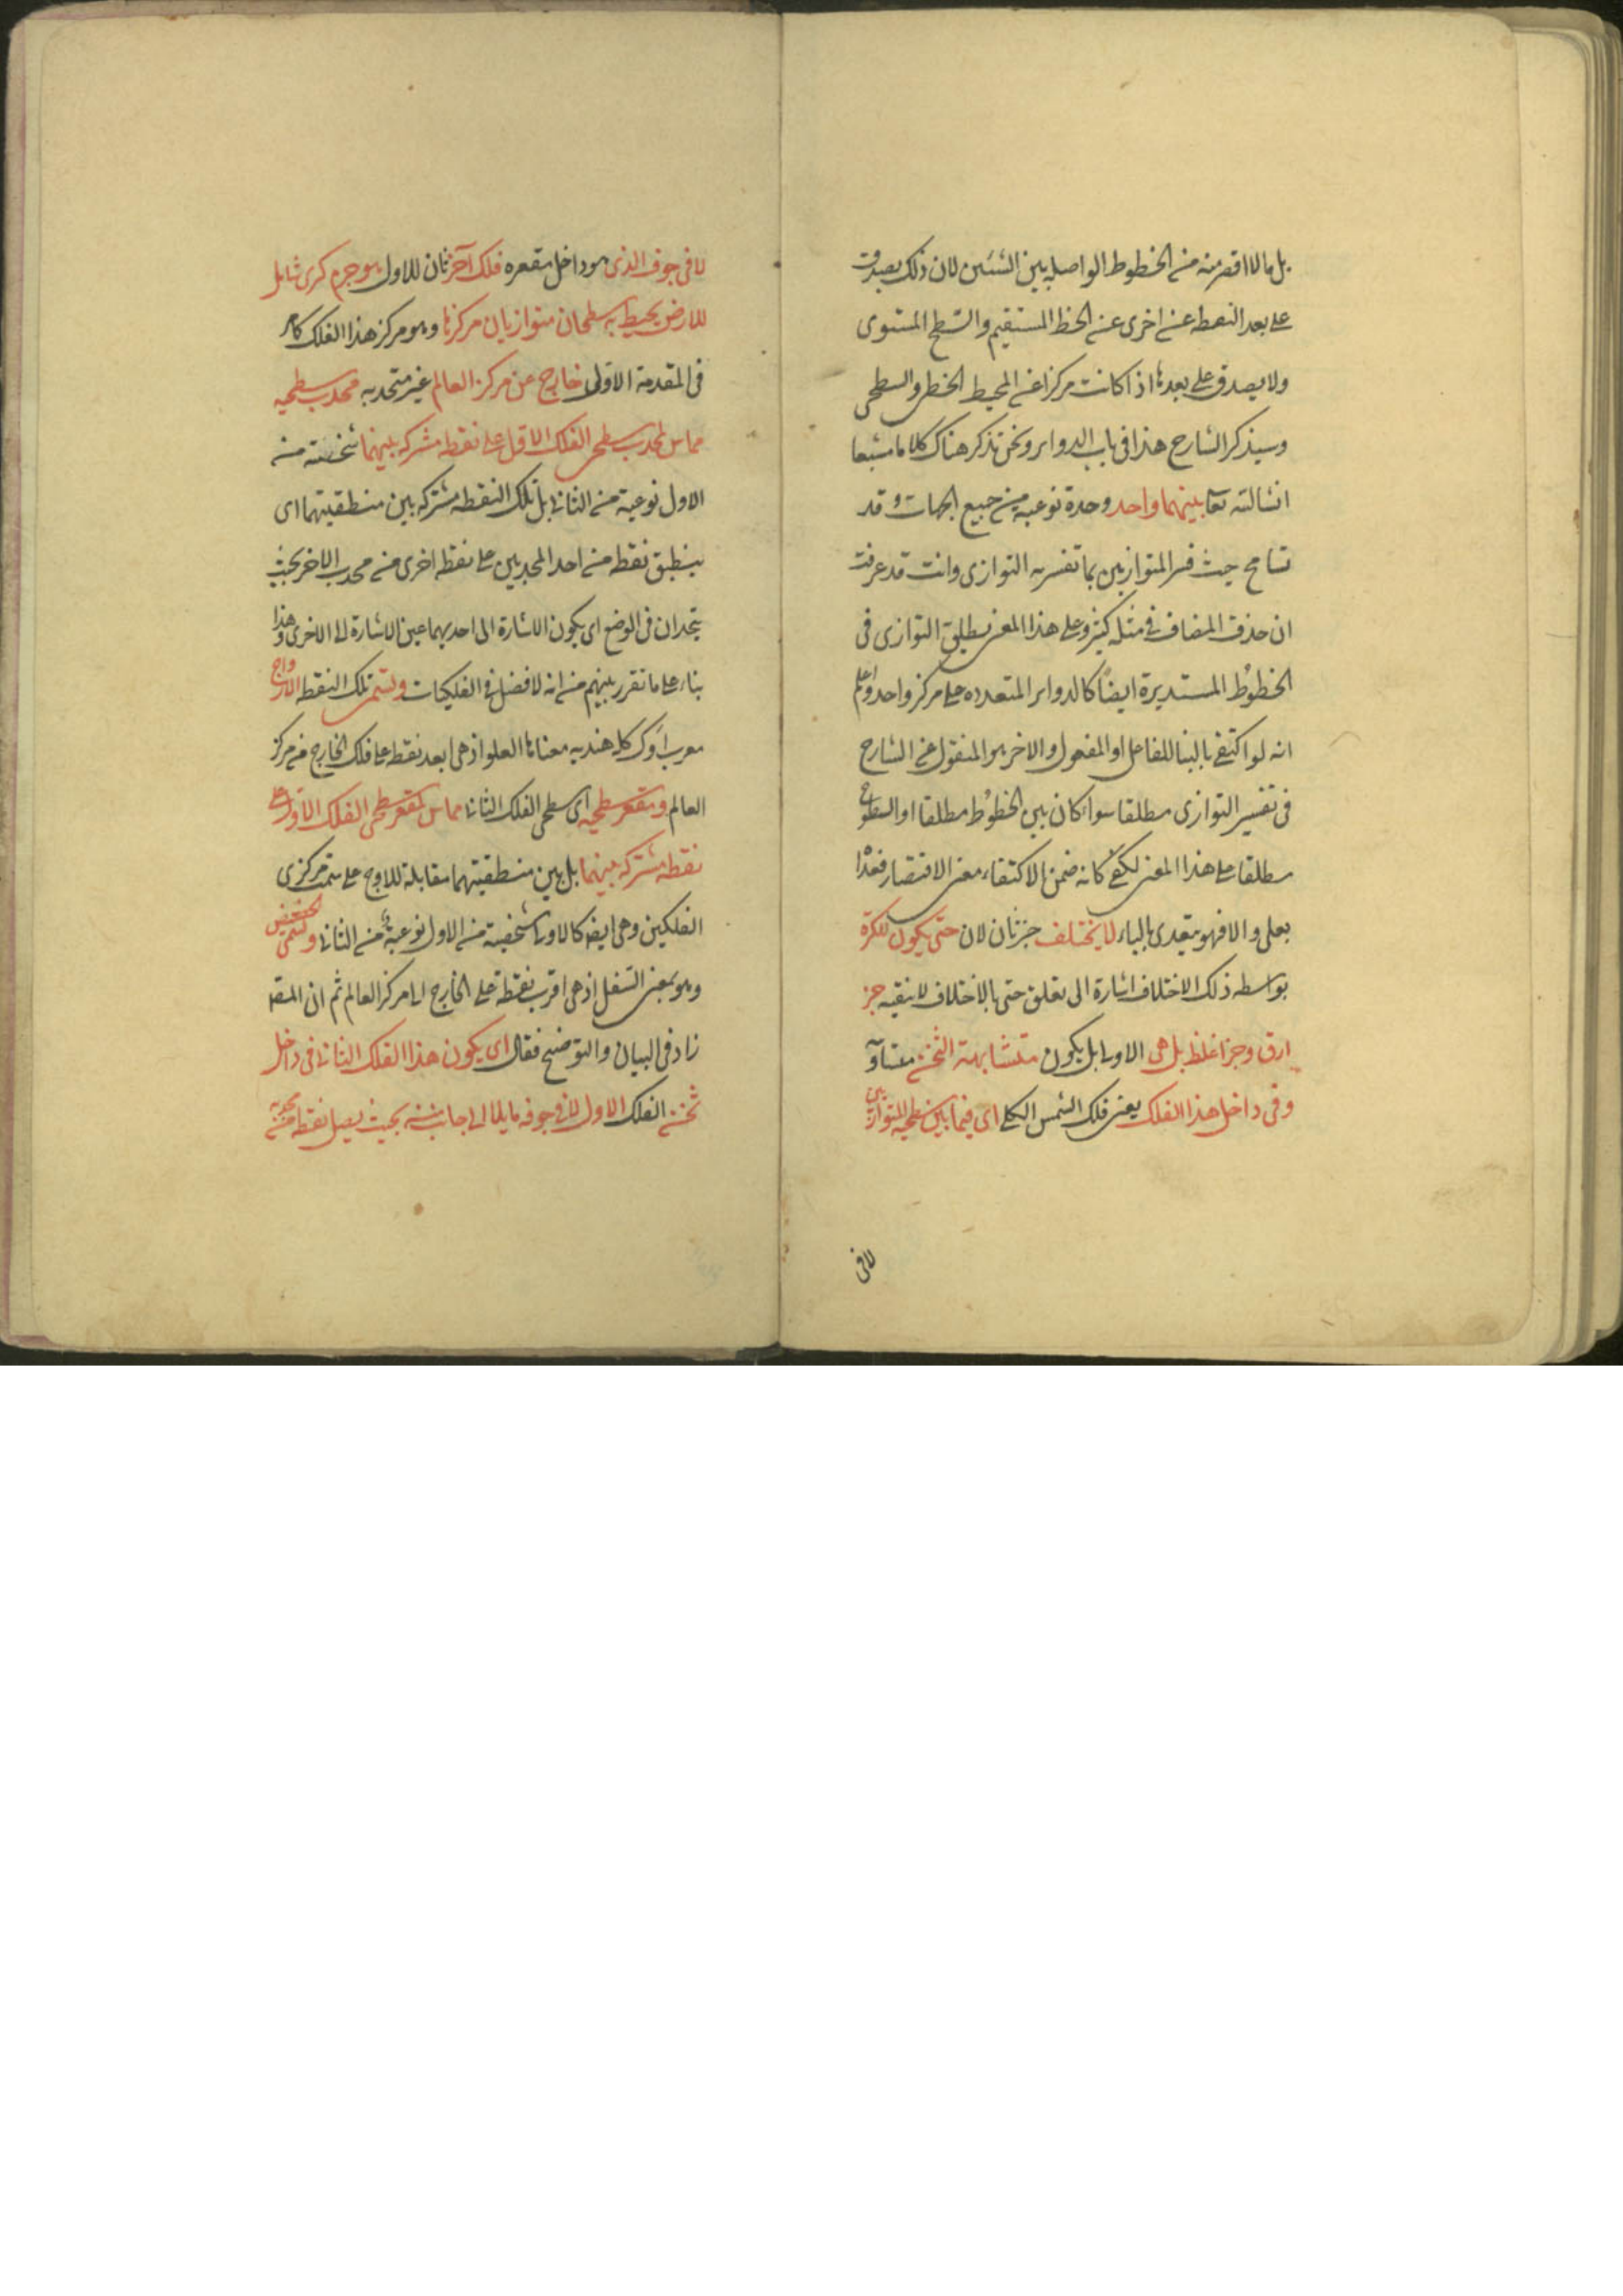 بل ما لا اقصر منه من الخطوط الواصله بين الشيئين لان ذلك يصدق
على بعد النقطه عن اخرى عن الخط المستقيم والسطح المستوى
ولا يصدق على بعدها اذا كانت مركزا عن المحيط الخطى والسطحى
وسيذكر الشارح هذا فى باب الدواير ونحن نذكر هناك كلاما مشبعا
انشا الله تعا بينهما واحد وحدة نوعيه من جميع الجهات وقد
تسامح حيث فسر المتوازيين بما تفسر به التوازى وانت قد عرفت
ان حذف المضاف فى مثله كثير وعلى هذا المعنى يطلق التوازى فى
الخطوط المستديرة ايضا كالدواير المتعدده على مركز واحد واعلم
انه لو اكتفى بالبنا للفاعل او المفعول والاخر هو المنقول عن الشارح
فى تفسير التوازى مطلقا سواء كان بين الخطوط مطلقا او السطوح
مطلقا على هذا المعنى لكفى كانه ضمن الاكتفاء معنى الاقتصار فعدا
بعلى والا فهو يتعدى بالباء لا يختلف جزئان لان حتى يكون للكرة
بواسطه ذلك الاختلاف اشارة الى تعلق حتى بالاختلاف لا بنفيه جز
ارق وجز اغلظ بل هى الاولى بل يكون متشابهة الثخن متساوٍ
وفى داخل هذا الفلك يعنى فلك الشمس الكلى اى فيما بين سطحيه المتوازيين
لا فى
لا فى جوف الذى هو داخل مقعره فلك آخر ثان للاول هو جرم كرى شامل
للارض يحيط به سطحان متوازيان مركزها وهو مركز هذا الفلك كامر
فى المقدمة الاولى خارج عن مركز العالم غير متحد به محدب سطحيه
مماس لمحدب سطحى الفلك الاول على نقطه مشتركه بينهما شخصية من
الاول نوعية من الثانى بل تلك النقطه مشتركه بين منطقتيهما اى
ينطبق نقطه من احد المحدبين على نقطه اخرى من محدب الاخر بحيث
يتحدان فى الوضع اى يكون الاشارة الى احديهما عين الاشارة الى الاخرى وهذا
بناء على ما تقرر بينهم من انه لا فضل فى الفلكيات وتسمى تلك النقطه الاوج
معرب اوك كلمه هنديه معناها العلو اذ هى ابعد نقطه على فلك الخارج من مركز
العالم ومقعر سطحيه اى سطحى الفلك الثانى مماس لمقعر سطحى الفلك الاول على
نقطه مشتركه بينهما بل بين منطقتيهما مقابلة للاوج على سمت مركزى
الفلكين وهى ايضا كالاولى شخصية من الاول نوعية من الثانى وتسمى الحضيض
وهو بمعنى السفل اذ هى اقرب نقطة على الخارج الى مركز العالم ثم ان المصنف
زاد فى البيان والتوضيح فقال اى يكون هذا الفلك الثانى فى داخل
ثخن الفلك الاول لا فى جوفه مايلا الى جانب منه بحيث يصل نقطه من محدبه